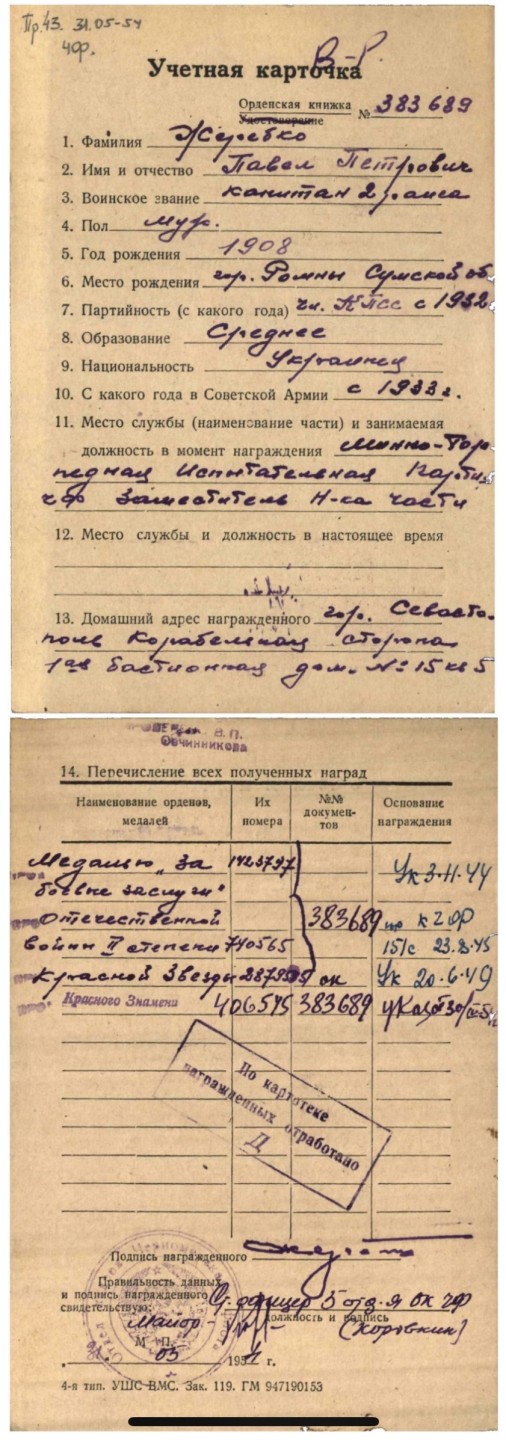 Пр.43. 31.05-54
ЧФ.
В-Р
Учетная карточка
Орденская книжка
Удостоверение
№ 383689
1. Фамилия Жеребко
2. Имя и отчество Павел Петрович
3. Воинское звание капитан 2 ранга
4. Пол муж.
5. Год рождения 1908
6. Место рождения гор. Ромны Сумской об
7. Партийность (с какого года) чл. КПСС с 1932
8. Образование Среднее
9. Национальность Украинец
10. С какого года в Советской Армии с 1933 г.
11. Место службы (наименование части) и занимаемая
должность в момент награждения Минно-Тор
педная Испытательная Партия
ЧФ Заместитель Н-ка части
12. Место службы и должность в настоящее время
13. Домашний адрес награжденного гор. Севасто-
поль Корабельная сторона
1ая бастионная дом. № 15 кв 5
В. П.
Овчинникова
14. Перечисление всех полученных наград
Наименование орденов, медалей
Их номера
№№ докумен-тов
Основание награждения
Медалью „За 1423797
боевые заслуги" Ук 3-11-44
Отечественной 383689 пр к ЧФ
войны II степени 740565 15/с 23.8.45
Красной Звезды ок Ук 20-6-49
Красного Знамени 406545 383689 указ
По картотеке
награжденных отработано
Д
Подпись награжденного
Правильность данных
и подпись награжденного
свидетельствую: Ст. офицер 5 отд-я ОК ЧФ
должность и подпись
Майор (Коровкин)
М П.
05 1954 г.
4-я тип. УШС ВМС. Зак. 119. ГМ 947190153